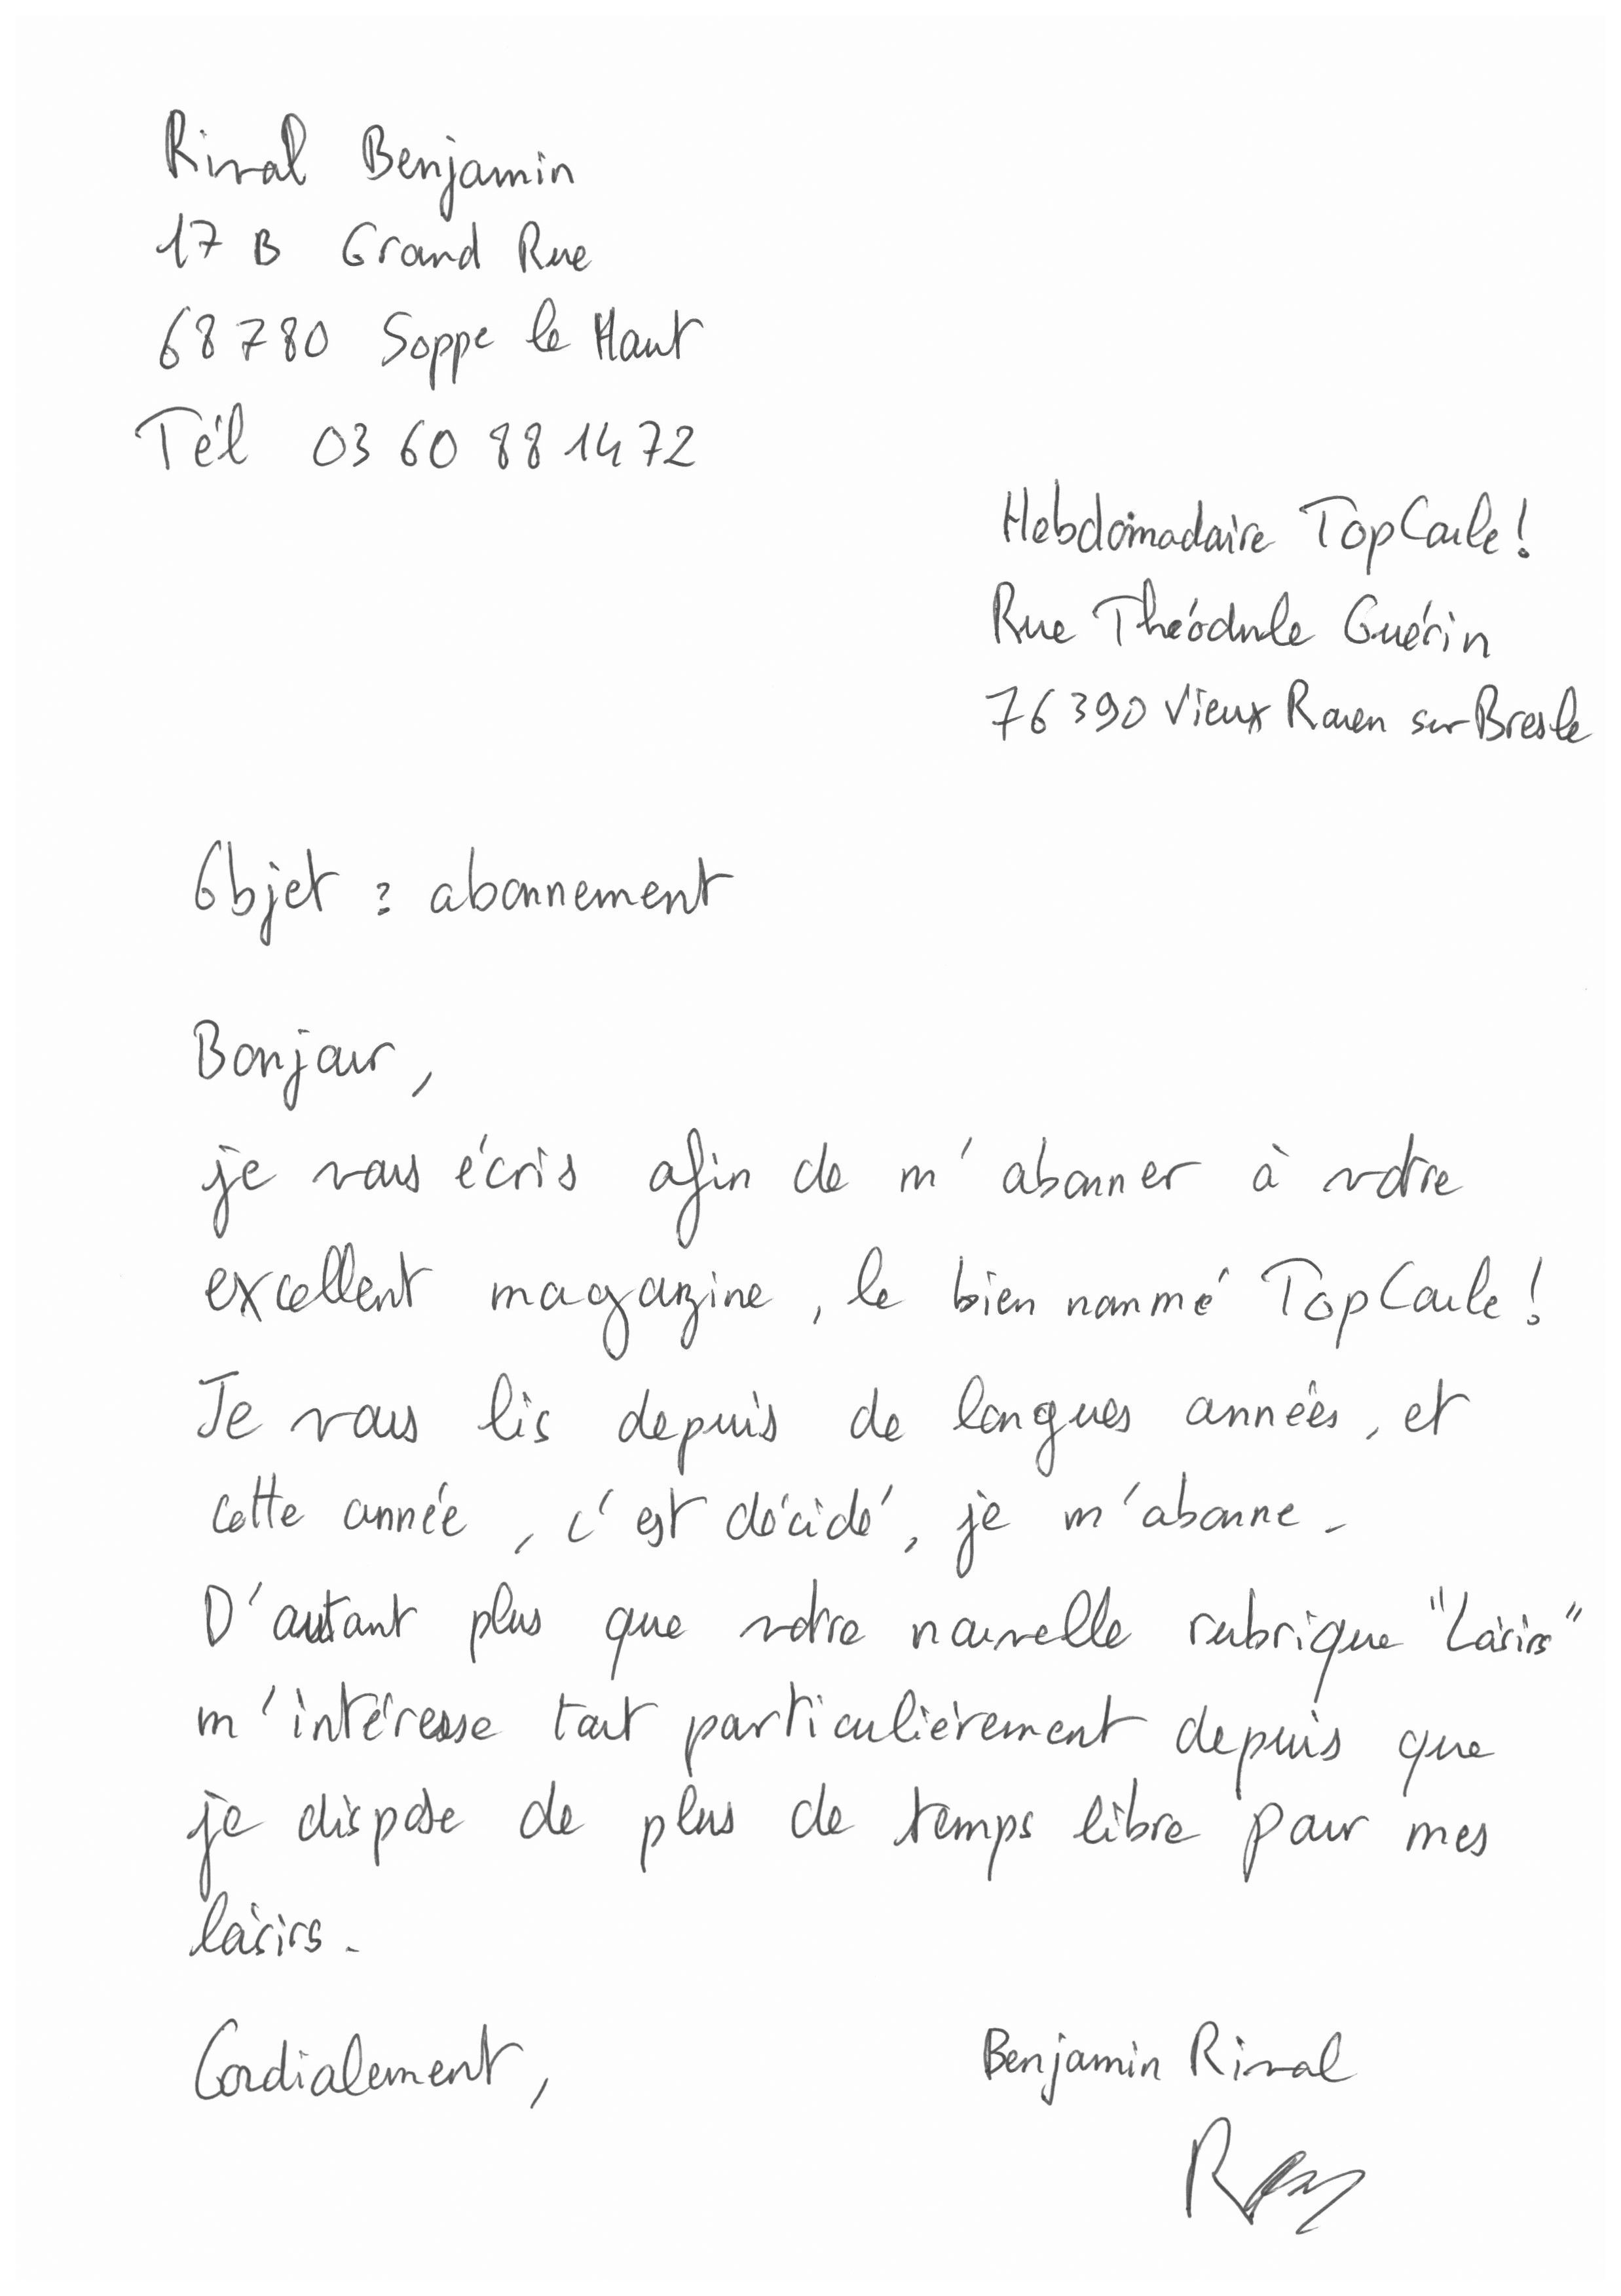 Rival Benjamin
17 B Grand Rue
68780 Soppe le Haut
Tél 03 60 88 14 72
Hebdomadaire TopCoule!
Rue Théodule Guérin
76390 Vieux Rouen sur Bresle
Objet : abonnement
Bonjour,
je vous écris afin de m'abonner à votre
excellent magazine, le bien nommé TopCoule!
Je vous lis depuis de longues années, et
cette année, c'est décidé, je m'abonne.
D'autant plus que votre nouvelle rubrique "Loisirs"
m'intéresse tout particulièrement depuis que
je dispose de plus de temps libre pour mes
loisirs.
Cordialement,
Benjamin Rival